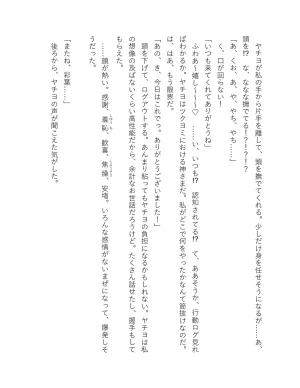 ヤチヨが私の手から片手を離して、頭を撫でてくれる。少しだけ身を任せそうになるが……あ、
頭を⁉　な、ななな撫でてる！？！？！？
「あ、くお、あ、や、やち、やち……」
　く、口が回らない！
「いつも来てくれてありがとうね」
　ふわあ～嬉し～～♡　……い、いつも⁉　認知されてる⁉　て、ああそうか、行動ログ見れ
ばわかるか。ヤチヨはツクヨミにおける神さまだ。私がどこで何をやったかなんて筒抜けなのだ。
　は、はあ、もう限界だ。
「あの、き、今日はこれでっ。ありがとうございました！」
　頭を下げて、ログアウトする。あんまり粘ってもヤチヨの負担になるかもしれない。ヤチヨは私
の想像の及ばないくらい高性能だから、余計なお世話だろうけど。たくさん話せたし、握手もして
もらえた。
　……頭が熱い。感謝、羞恥、歓喜、焦燥、安堵。いろんな感情がないまぜになって、爆発しそ
うだった。
「またね、彩葉……」
　後ろから、ヤチヨの声が聞こえた気がした。